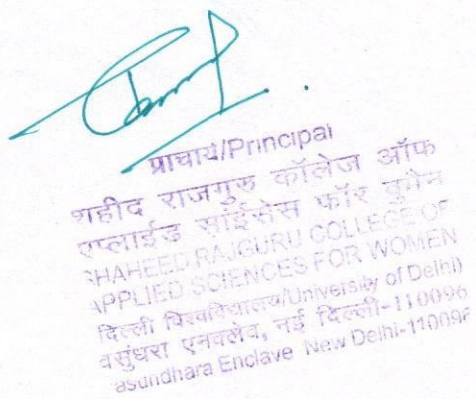 प्राचार्य/Principal
शहीद राजगुरु कॉलेज ऑफ
एप्लाईड साईंसेस फॉर वुमेन
SHAHEED RAJGURU COLLEGE OF
APPLIED SCIENCES FOR WOMEN
(दिल्ली विश्वविद्यालय/University of Delhi)
वसुंधरा एनक्लेव, नई दिल्ली-110096
asundhara Enclave New Delhi-110096